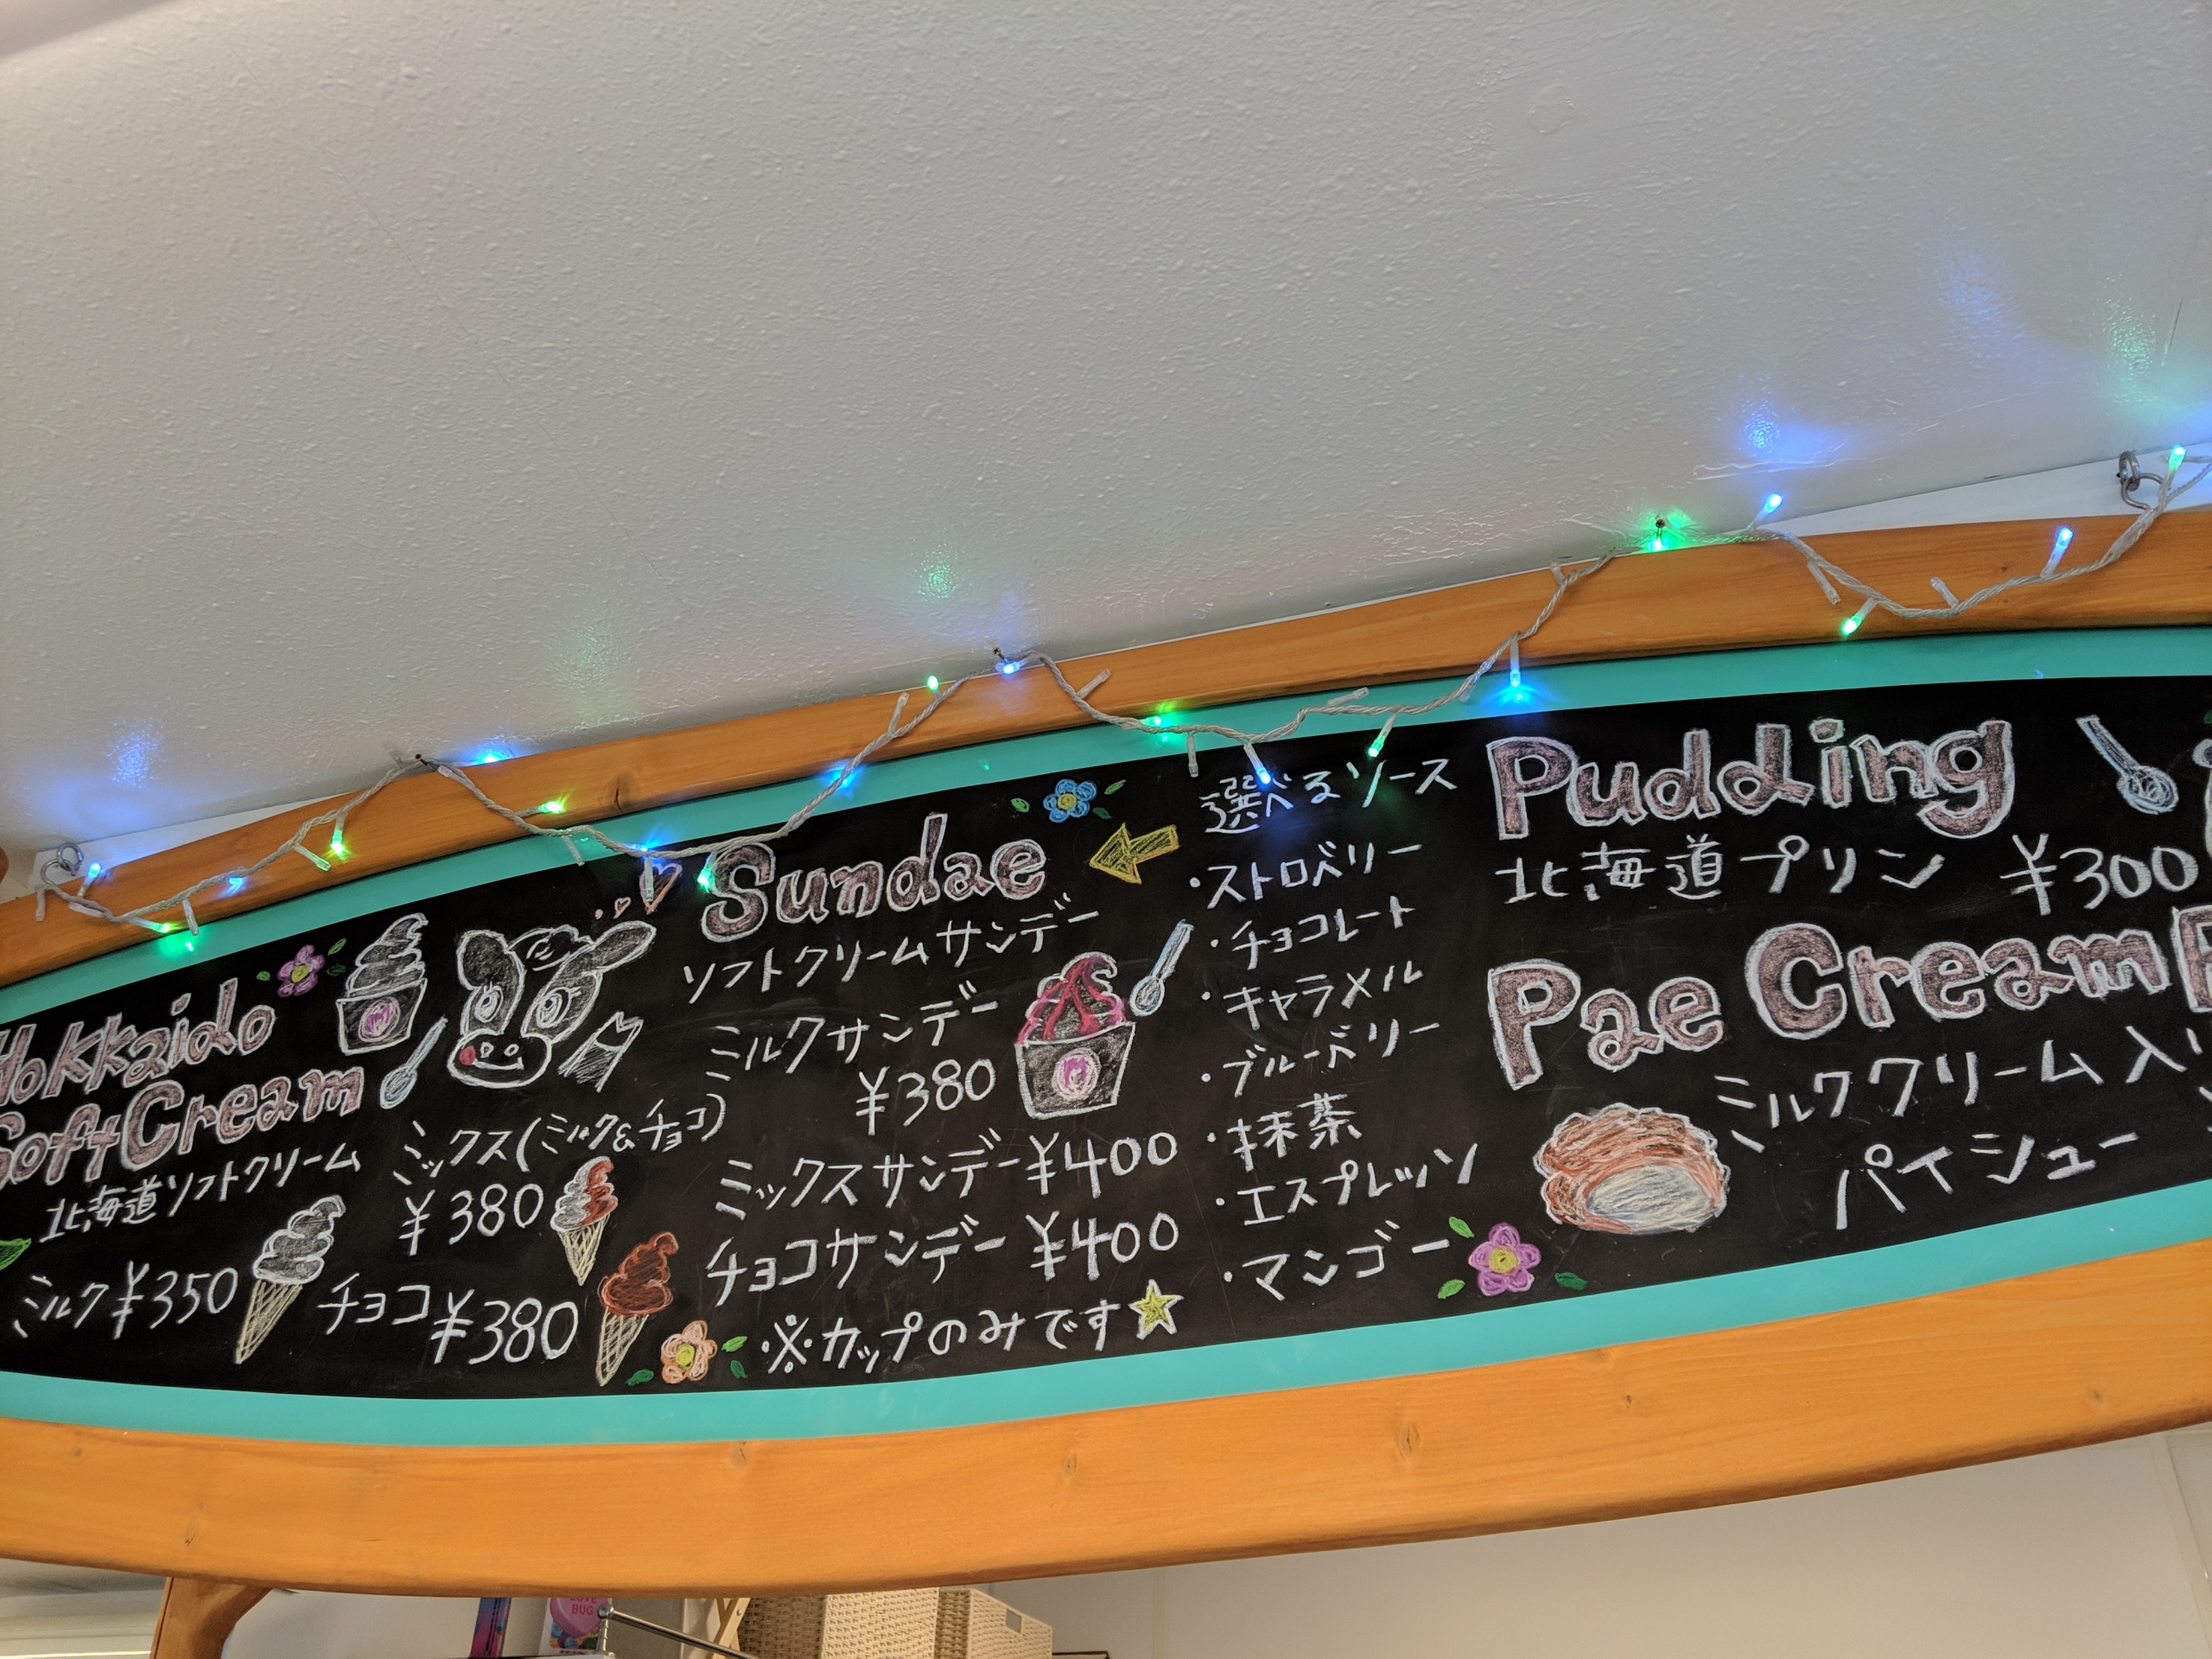 Hokkaido
Soft Cream
北海道ソフトクリーム
ミルク ¥350
ミックス(ミルク&チョコ)
¥380
チョコ ¥380
Sundae
ソフトクリームサンデー
ミルクサンデー
¥380
ミックスサンデー ¥400
チョコサンデー ¥400
※カップのみです
選べるソース
・ストロベリー
・チョコレート
・キャラメル
・ブルーベリー
・抹茶
・エスプレッソ
・マンゴー
Pudding
北海道プリン ¥300
Pae Cream
ミルククリーム入り
パイシュー
LOVE
BUG